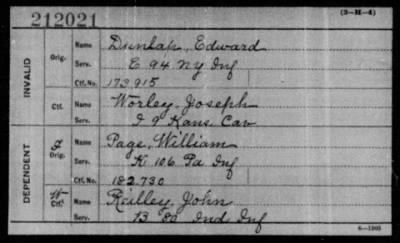 (3-H-4)
212021
INVALID
Orig.
Name Dunlap, Edward
Serv. E 94 NY Inf
Ctf. No. 173915
Ctf.
Name Worley, Joseph
Serv. I 9 Kans Cav
DEPENDENT
Orig.
Name Page, William
Serv. K 106 Pa Inf
Ctf. No. 182.730
W
Ctf.
Name Reilley, John
Serv. B 80 Ind Inf